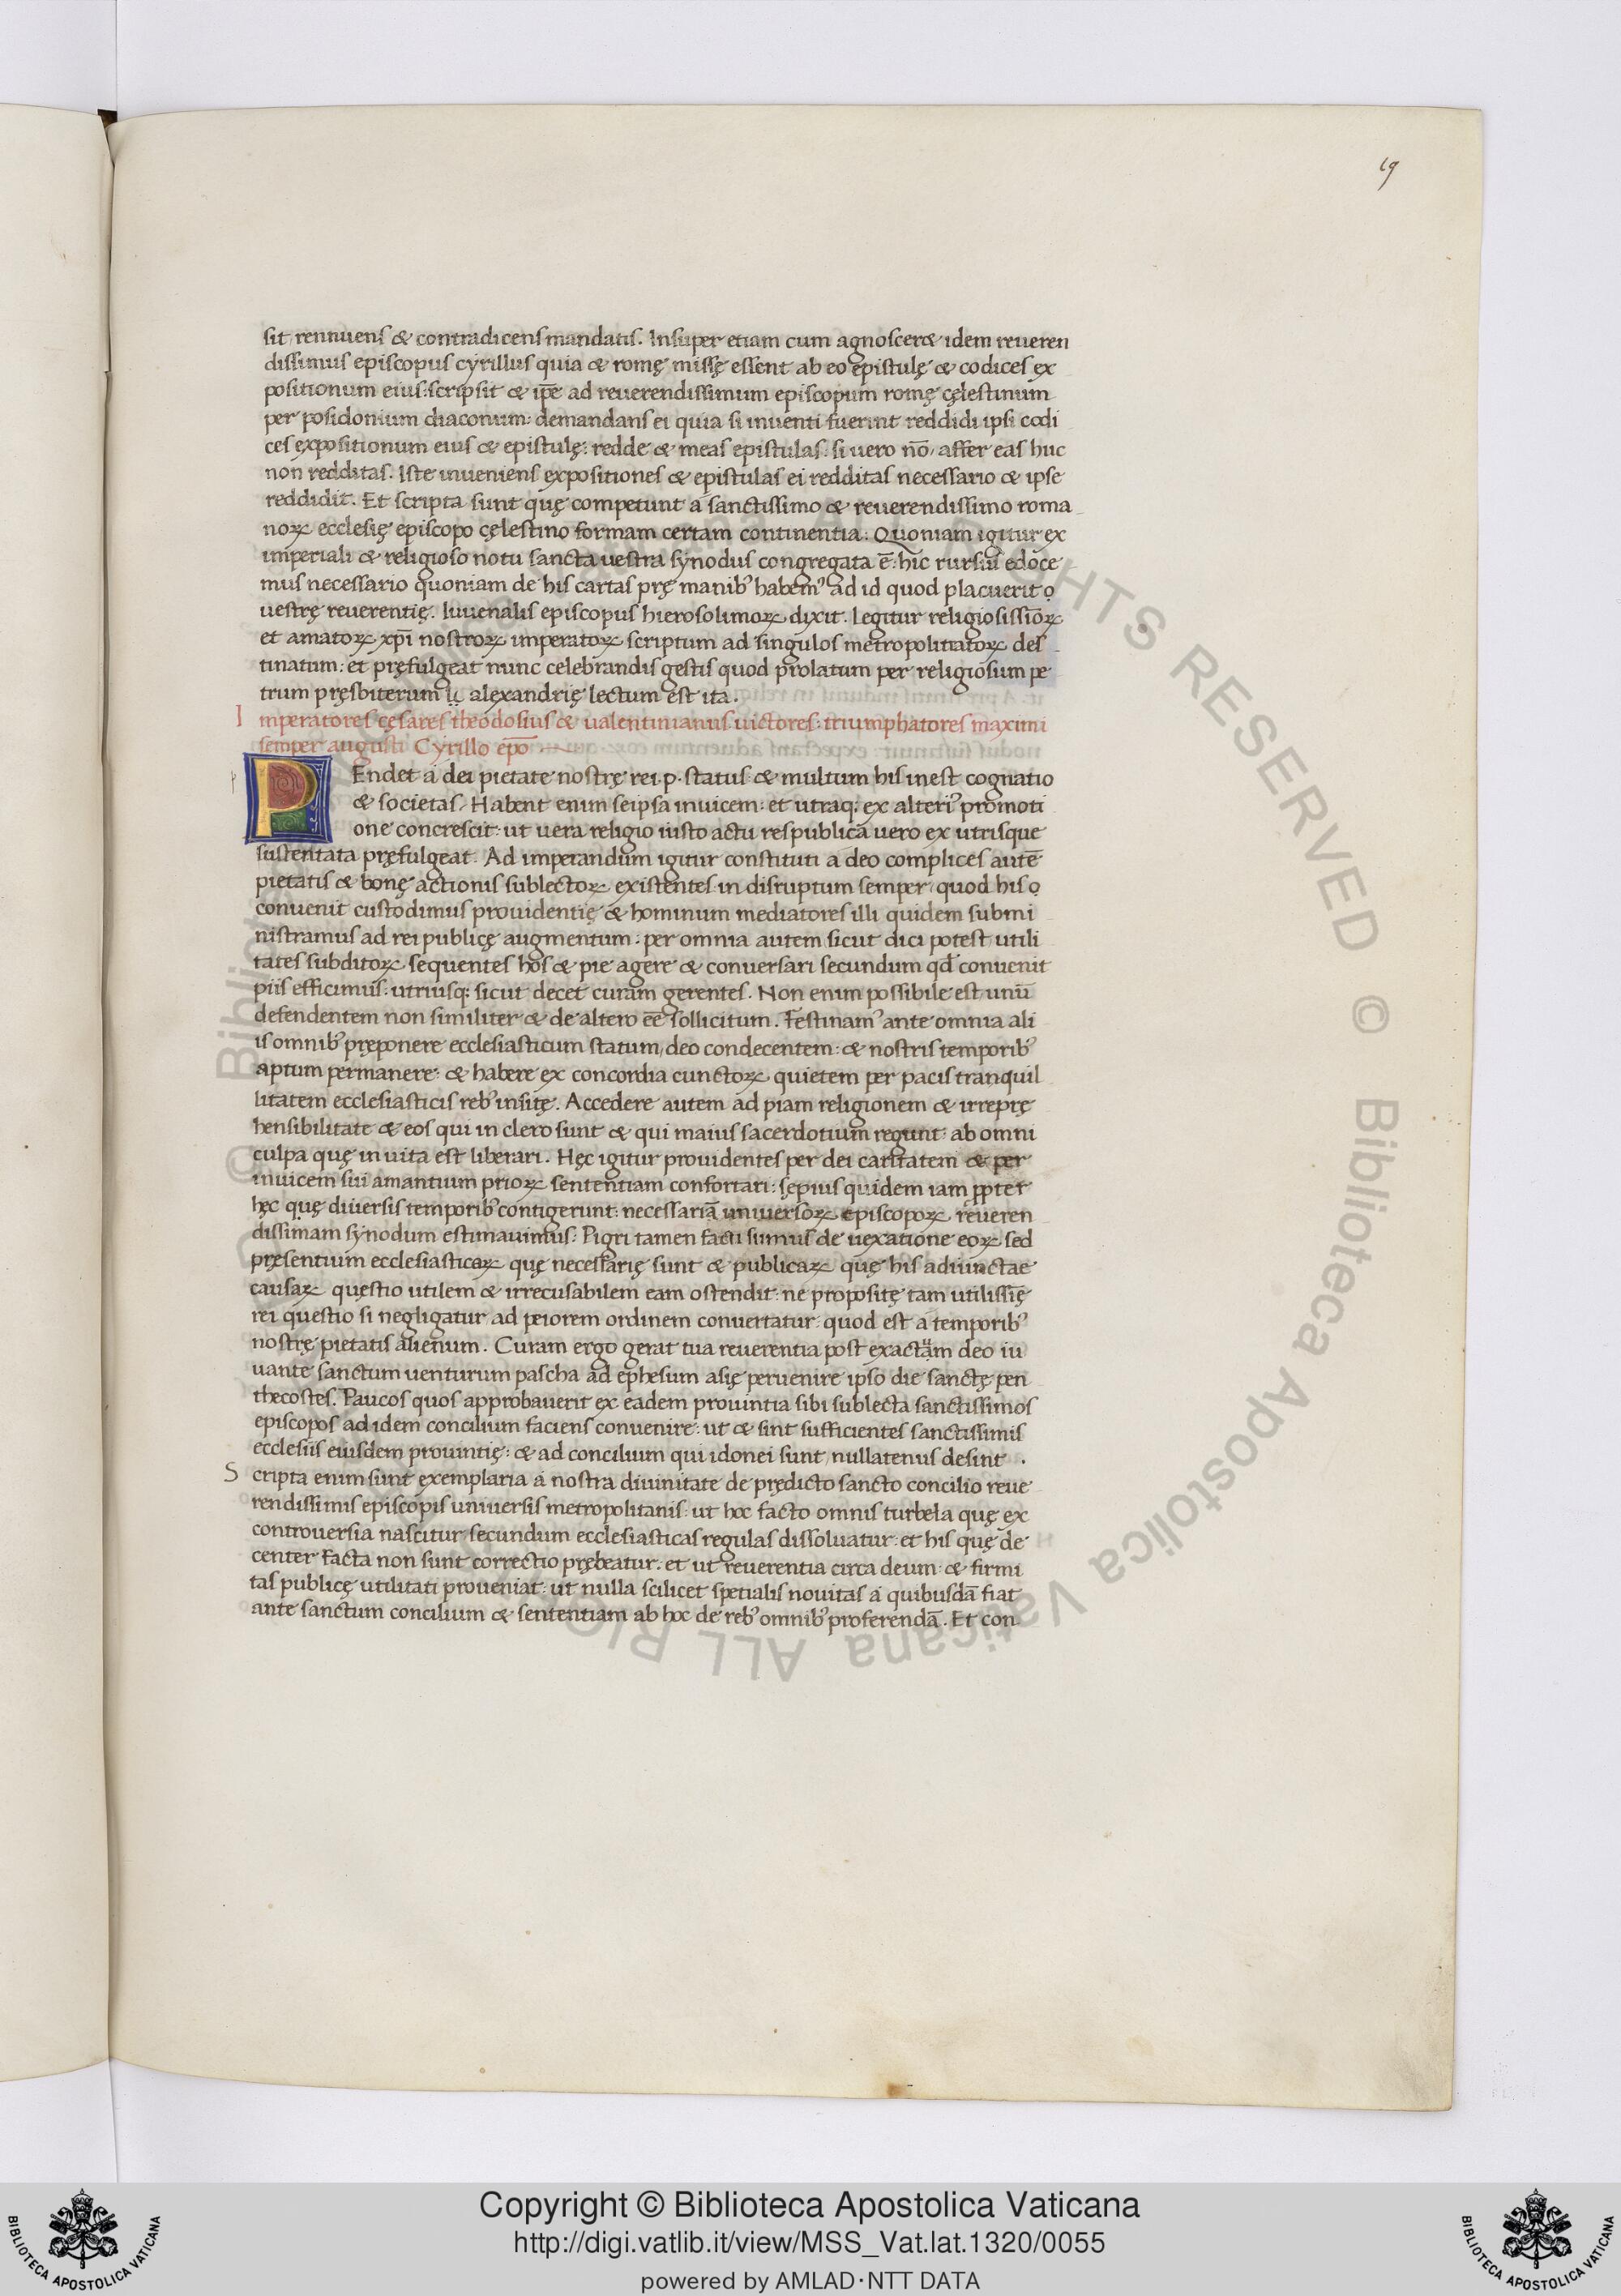 19
sit rennuens & contradicens mandatis. Insuper etiam cum agnoscer& idem reueren
dissimus episcopus cyrillus quia & romę missę essent ab eo epistulę & codices ex
positionum eius: scripsit & ip̄e ad reuerendissimum episcopum romę cęlestinum
per posidonium diaconum: demandans ei quia si inuenti fuerint reddidi ipsi codi
ces expositionum eius & epistulę: redde & meas epistulas. si uero nō, affer eas huc
non redditas. Iste inueniens expositiones & epistulas ei redditas necessario & ipse
reddidit. Et scripta sunt quę competunt a sanctissimo & reuerendissimo roma
noꝝ ecclesię episcopo cęlestino formam certam continentia. Quoniam igitur ex
imperiali & religioso notu sancta uestra synodus congregata ē: hic rursū edoce
mus necessario quoniam de his cartas prę manibꝰ habemꝰ ad id quod placuerit o
uestrę reuerentię. Iuuenalis episcopus hierosolimoꝝ dixit. Legitur religiosissīoꝝ
et amatoꝝ xp̄i nostroꝝ imperatoꝝ scriptum ad singulos metropolitatoꝝ des
tinatum: et pręfulgeat nunc celebrandis gestis quod prolatum per religiosum pe
trum pręsbiterum u alexandrię lectum est ita.
Imperatores cęsares theodosius & ualentinianus uictores: triumphatores maximi
semper augusti Cyrillo ep̄o
PEndet a dei pietate nostrę rei .p. status & multum his inest cognatio
& societas. Habent enim seipsa inuicem: et utraq; ex alteriꝰ promoti
one concrescit: ut uera religio iusto actu respublica uero ex utrisque
sustentata pręfulgeat. Ad imperandum igitur constituti a deo complices autē
pietatis & bonę actionis sublectoꝝ existentes in disruptum semper, quod his o
conuenit custodimus prouidentię & hominum mediatores illi quidem submi
nistramus ad rei publicę augmentum: per omnia autem sicut dici potest utili
tates subditoꝝ sequentes hos & pie agere & conuersari secundum qd̄ conuenit
piis efficimus: utriusq; sicut decet curam gerentes. Non enim possibile est unū
defendentem non similiter & de altero eē sollicitum. Festinamꝰ ante omnia ali
is omnibꝰ pręponere ecclesiasticum statum, deo condecentem: & nostris temporibꝰ
aptum permanere: & habere ex concordia cunctoꝝ quietem per pacis tranquil
litatem ecclesiasticis rebꝰ insitę. Accedere autem ad piam religionem & irreprę
hensibilitate & eos qui in clero sunt & qui maius sacerdotium regunt: ab omni
culpa quę in uita est liberari. Hęc igitur prouidentes per dei caritatem & per
inuicem sui amantium prioꝝ sententiam confortari: sępius quidem iam ꝓpter
hęc quę diuersis temporibꝰ contigerunt: necessariā uniuersoꝝ episcopoꝝ reueren
dissimam synodum estimauimus: Pigri tamen facti sumus de uexatione eoꝝ sed
pręsentium ecclesiasticaꝝ quę necessarię sunt & publicaꝝ quę his adiunctae
causaꝝ quęstio utilem & irrecusabilem eam ostendit: ne propositę tam utilissīę
rei questio si negligatur ad peiorem ordinem conuertatur: quod est a temporibꝰ
nostrę pietatis alienum. Curam ergo gerat tua reuerentia post exactam deo iu
uante sanctum uenturum pascha ad ephesum asię peruenire ipso die sanctę pen
thecostes. Paucos quos approbauerit ex eadem prouintia sibi sublecta sanctissimos
episcopos ad idem concilium faciens conuenire: ut & sint sufficientes sanctissimis
ecclesiis eiusdem prouintię: & ad concilium qui idonei sunt, nullatenus desint.
Scripta enim sunt exemplaria a nostra diuinitate de prędicto sancto concilio reue
rendissimis episcopis uniuersis metropolitanis: ut hoc facto omnis turbela quę ex
controuersia nascitur, secundum ecclesiasticas regulas dissoluatur: et his quę de
center facta non sunt correctio prębeatur: et ut reuerentia circa deum: & firmi
tas publicę utilitati proueniat: ut nulla scilicet spetialis nouitas a quibusdā fiat
ante sanctum concilium & sententiam ab hoc de rebꝰ omnibꝰ proferendā. Et con
© Biblioteca Apostolica Vaticana ALL RIGHTS RESERVED
Copyright © Biblioteca Apostolica Vaticana
http://digi.vatlib.it/view/MSS_Vat.lat.1320/0055
powered by AMLAD·NTT DATA
BIBLIOTECA APOSTOLICA VATICANA
BIBLIOTECA APOSTOLICA VATICANA